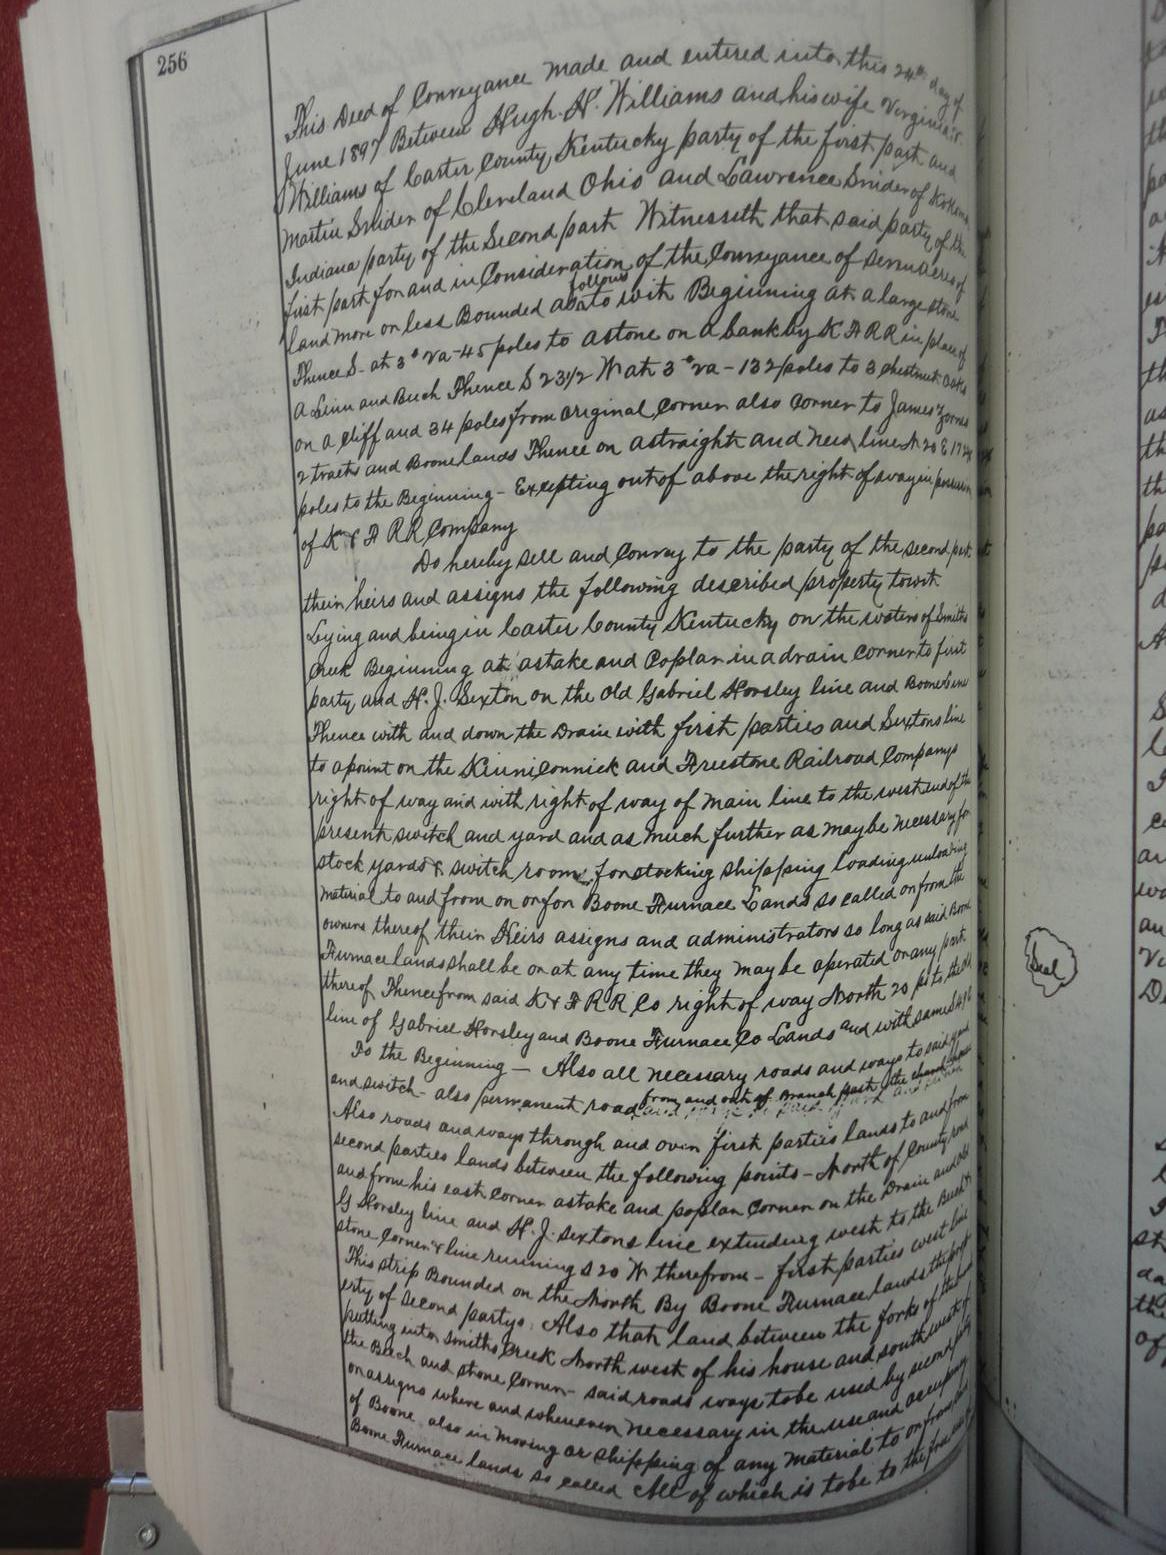 256
This Deed of Conveyance made and entered into this 24th day of
June 1897 Between Hugh H. Williams and his wife Virginia
Williams of Carter County, Kentucky party of the first part and
Martin Snider of Cleveland Ohio and Lawrence Snider of Kokomo
Indiana party of the Second part Witnesseth that said party of the
first part for and in Consideration of the Conveyance of seven acres of
follows
land more or less Bounded as to wit Beginning at a large stone
Thence S- at 3° va-45 poles to a stone on a bank by K & F RR in place of
a Linn and Buch Thence S 23½ W at 3° va - 132 poles to 3 chestnut oaks
on a cliff and 34 poles from original corner also corner to James
2 tracts and Boone lands Thence on a straight and new line N 20 E
poles to the Beginning - Excepting out of above the right of way in
of K & F RR Company
Do hereby sell and Convey to the party of the second part
their heirs and assigns the following described property towit
Lying and being in Carter County Kentucky on the waters of Smiths
Creek Beginning at a stake and Poplar in a drain corner to first
party and H. J. Sexton on the Old Gabriel Horsley line and Boone line
Thence with and down the Drain with first parties and Sextons line
to a point on the Kinniconnick and Freestone Railroad Companys
right of way and with right of way of main line to the west end of the
present switch and yard and as much further as may be necessary for
stock yards & switch room, for stocking shipping loading unloading
material to and from on or for Boone Furnace Lands so called or from the
owners thereof their Heirs assigns and administrators so long as said Boone
Furnace lands shall be or at any time they may be operated or any part
thereof Thence from said K & F RR Co right of way North 20 ps to the old
line of Gabriel Horsley and Boone Furnace Co Lands and with same
To the Beginning - Also all necessary roads and ways to said yard
and switch- also permanent road from and out of Branch past the church house
Also roads and ways through and over first parties lands to and from
second parties lands between the following points - North of County road
and from his east corner a stake and poplar corner on the Drain and old
G Horsley line and H. J. Sextons line extending west to the Buch &
stone corner & line running S 20 W therefrom - first parties west line
This strip Bounded on the North By Boone Furnace lands the prop
erty of second partys. Also that land between the forks of the
putting into Smiths Creek North west of his house and south west of
the Buch and stone corner - said roads ways to be used by second party
or assigns where and whereever necessary in the use and occupancy
of Boone also in moving or shipping of any material to or from
Boone Furnace lands so called All of which is to be to the free use
Seal